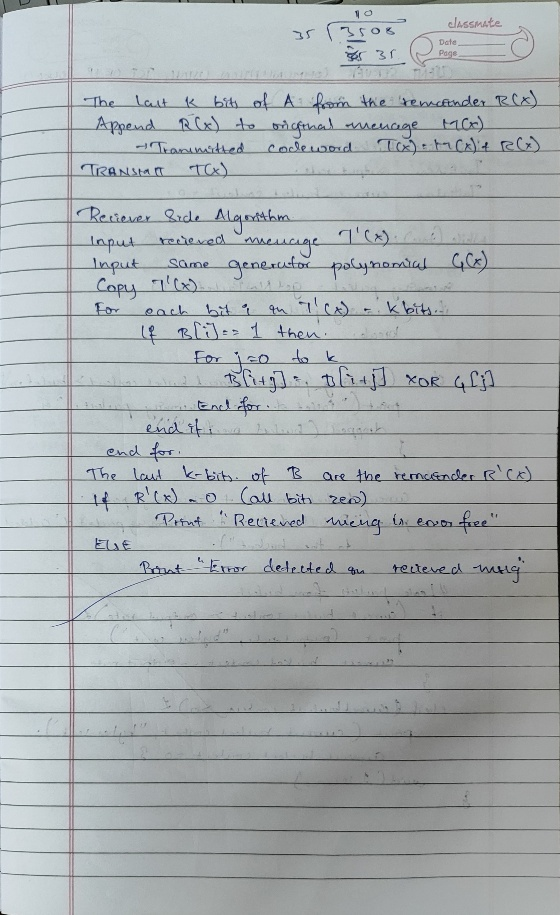 10
35 3508
35 35
classmate
Date
Page
The last k bits of A from the remainder R(x)
Append R(x) to original message M(x)
→ Transmitted codeword T(x) = M(x) + R(x)
TRANSMIT T(x)
Reciever Side Algorithm
Input recieved message T'(x)
Input same generator polynomial G(x)
Copy T'(x)
For each bit i in T'(x) - k bits.
If B[i] == 1 then.
For j=0 to k
B[i+j] = B[i+j] XOR G[j]
End for.
end if;
end for.
The last k-bits of B are the remainder R'(x)
If R'(x) = 0 (all bits zero)
Print "Recieved msg is error free"
ELSE
Print "Error detected in recieved msg"